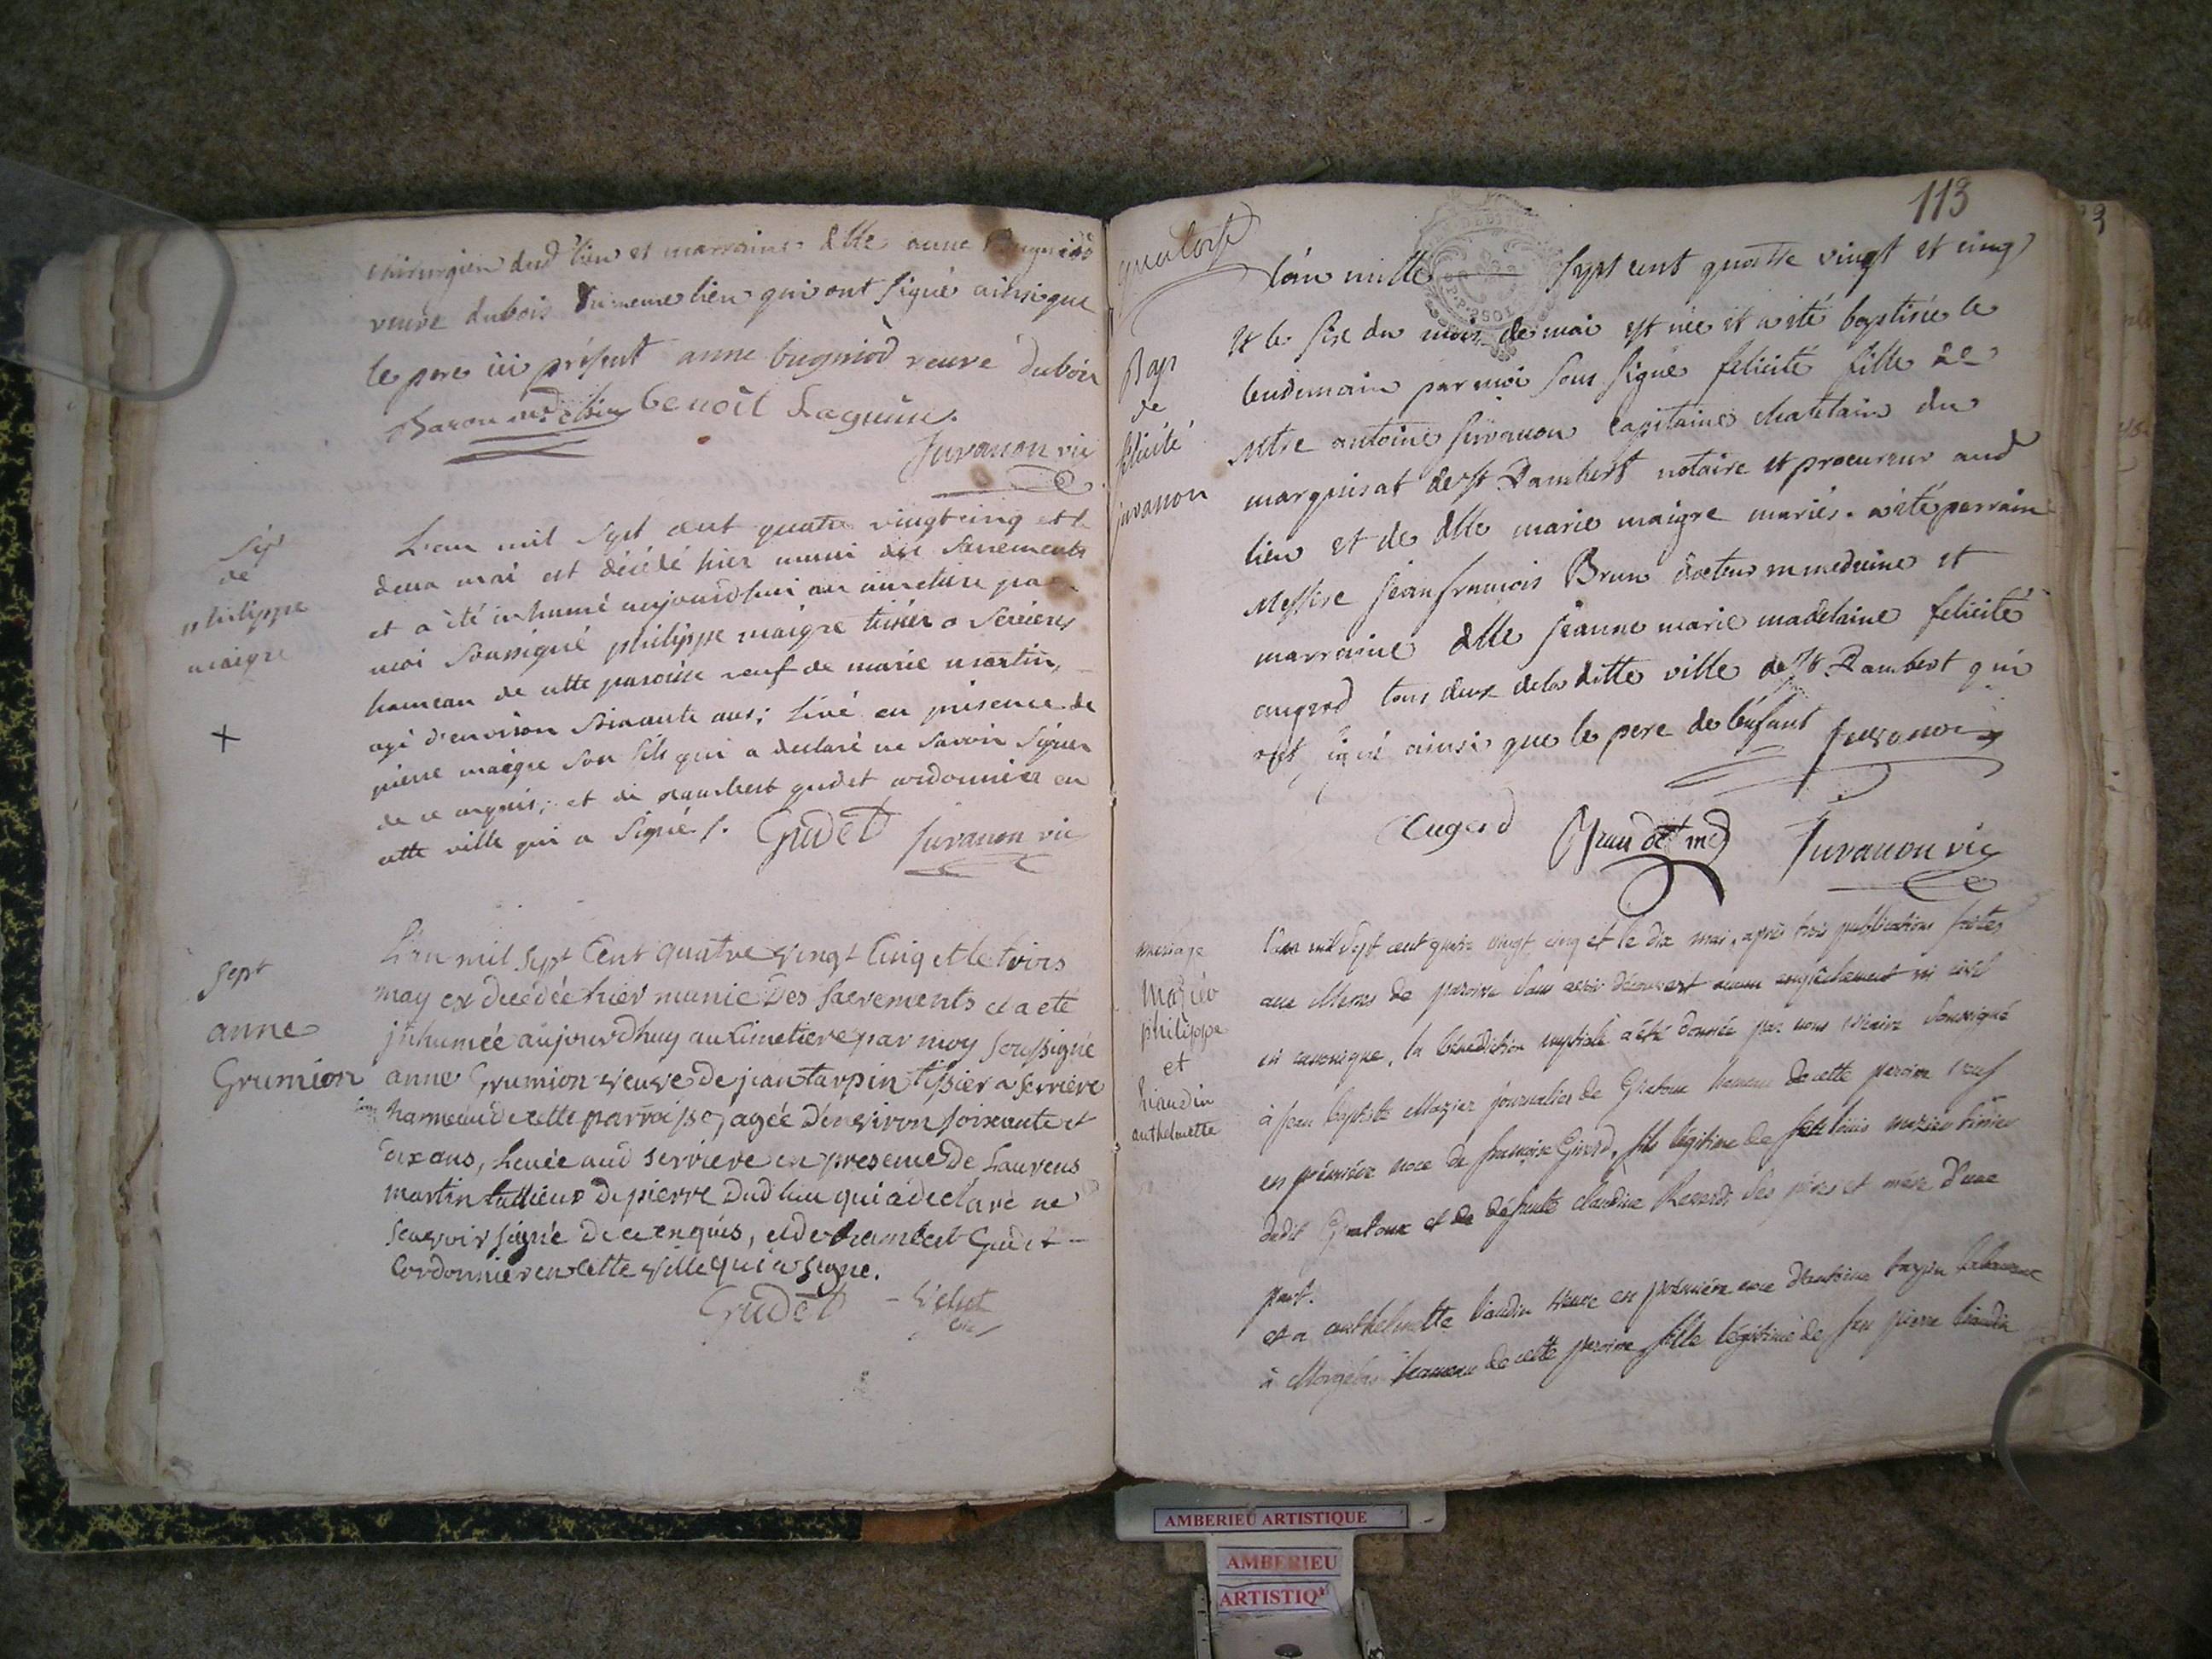 chirurgien dud lieu et marraine dlle anne Bugniod
veuve dubois du meme lieu qui ont signé ainsi que
le pere ici présent anne bugniod veuve dubois
benoît Laguin.
Juvanon vic
Sep
de
philippe
maigre
L'an mil sept cent quatre vingt cinq et le
deux mai est décédé hier muni des sacrements
et a été inhumé aujourdhui au cimetiere par
moi soussigné philippe maigre tissier a serrieres
hameau de cette paroisse veuf de marie martin,
agé d'environ soixante ans; levé en présence de
pierre maigre son fils qui a declaré ne savoir signer
de ce enquis; et de rambert gudet cordonnier en
cette ville qui a signé.
Gudet Juvanon vic
Sept
anne
Grumion
L'an mil sept Cent quatre vingt Cinq et le trois
may est decedée hier munie Des sacrements et a eté
jnhumée aujourdhuy au Cimetiere par moy soussigné
anne Grumion veuve de jean tarpin tissier a serriere
hameau de cette parroisse, agée d'environ soixante et
dix ans, Levée aud serriere en presence de Laurens
martin tallieur de pierre Dud lieu qui a declaré ne
sçavoir signé de ce enquis, et de rambert Gudet
Cordonnier en cette ville qui a signé.
Gudet
113
quatorse
Bap
de
félicité
juvanon
L'an mille sept cent quatre vingt et cinq
et le six du mois de mai est née et a été baptisée le
lendemain par moi sous signé felicité fille de
mtre antoine juvanon capitaine chatelain du
marquisat de st Rambert notaire et procureur aud
lieu et de dlle marie maigre mariés. a été parrain
Messire jean françois Brun docteur en medecine et
marraine dlle jeanne marie madelaine felicité
augerd tous deux de la ditte ville de st Rambert qui
ont signé ainsi que le pere de l'enfant Juvanon
Augerd Brun dct med Juvanon vic
mariage
Mazier
philippe
et
Liaudin
anthelmette
L'an mil sept cent quatre vingt cinq et le dix mai, après trois publications faites
aux Messes de paroisse sans avoir découvert aucun empêchement ni civil
ni canonique, la bénédiction nuptiale a été donnée par nous vicaire soussigné
à jean baptiste Mazier journalier de Gratoux hameau de cette paroisse veuf
en première noce de françoise Girod, fils légitime de louis mazier tissier
dudit Gratoux et de défunte claudine Reverdi ses père et mère d'une
part.
et a anthelmette liaudin veuve en première noce d'antoine tarpin laboureur
à Morgelas hameau de cette paroisse fille légitime de feu pierre liaudin
AMBERIEU ARTISTIQUE
AMBERIEU
ARTISTIQ